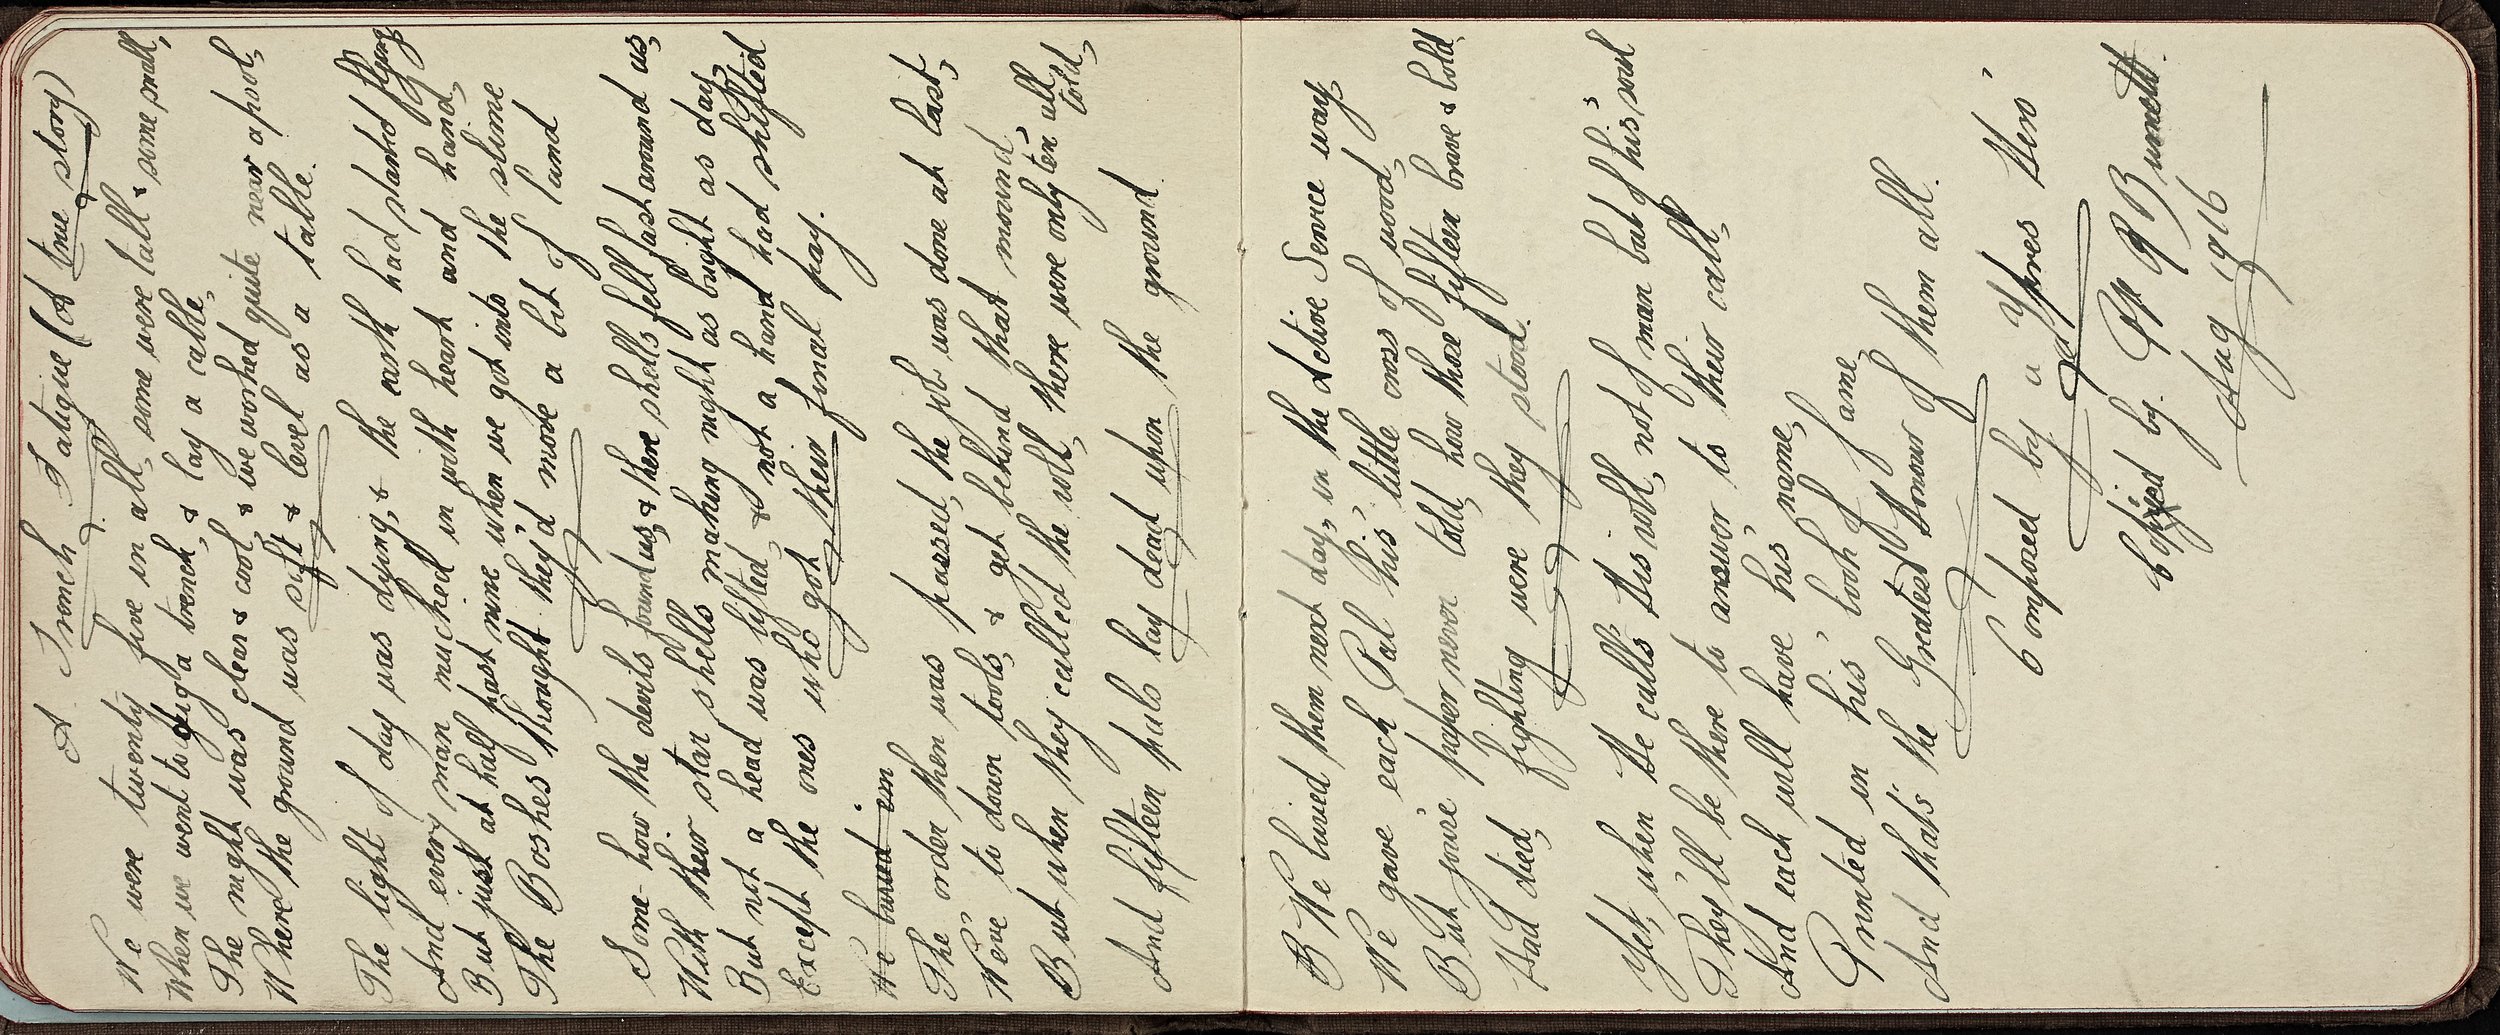 A Trench Fatigue (A true story)
We were twenty five in all, some were tall & some small,
When we went to dig a trench, & lay a cable,
The night was clear & cool, & we worked quite near a pool,
Where the ground was soft & level as a table.
The light of day was dying, & the earth had started flying
And every man muched in with heart and hand,
But just at half past nine when we got into the slime
The Boshes thought they'd move a bit of land
Some-how the devils found us, & there shells fell fast around us,
With their star shells making night as bright as day,
But not a head was lifted, & not a hand had shifted
Except the ones who got their final pay.
We buried em
The order then was passed, the job was done at last,
We're to down tools, & get behind that mound,
But when they called the roll, there were only ten all told,
And fifteen pals lay dead upon the ground.
B We buried them next day, in the Active Service way
We gave each Pal his little cross of wood,
But you're paper never told, how those fifteen brave & bold
Had died, fighting were they stood.
Yet, when He calls His roll, not of man but of his soul
They'll be there to answer to their call,
And each will have his name,
Printed in his book of fame,
And that's the Greatest Honour of them all.
Composed by a Ypres Hero
Copied by. Pte A B Burnett.
Aug 1916